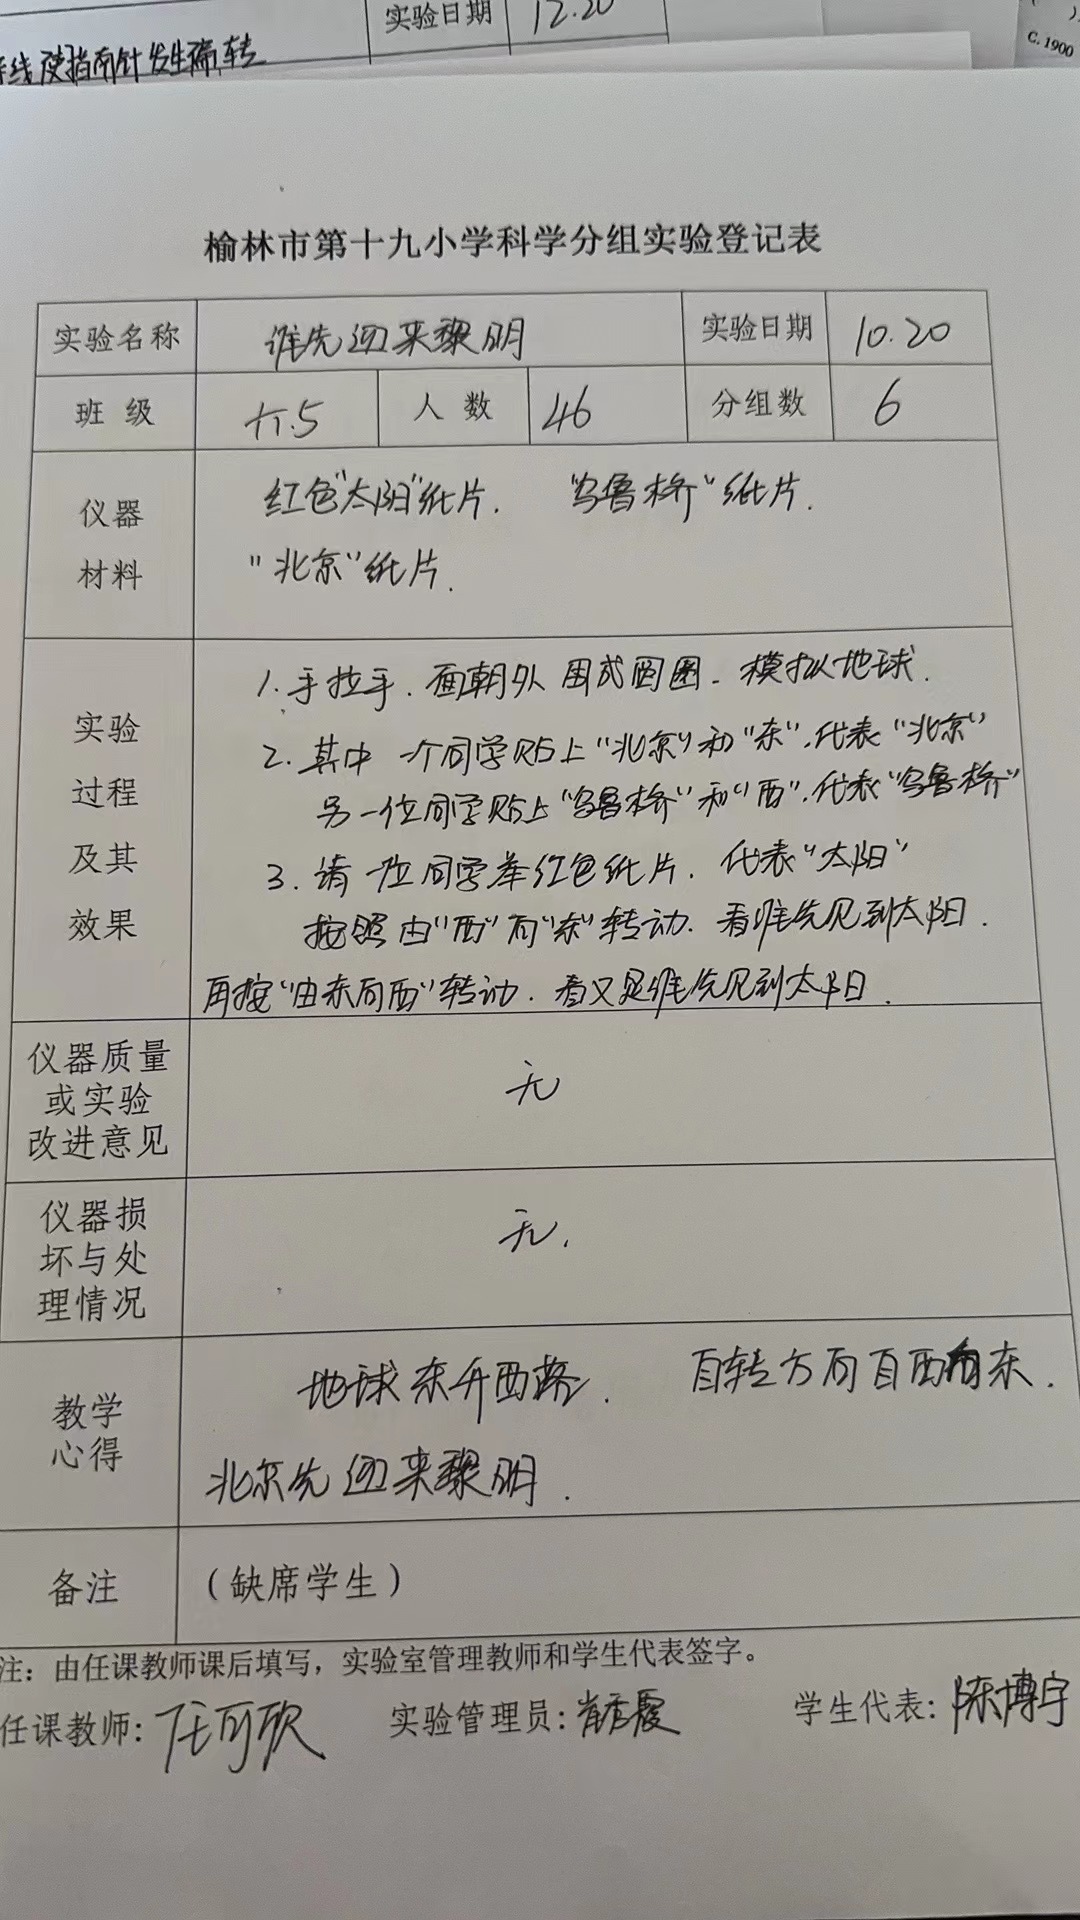 实验日期 12.20
导线使指南针发生偏转
C. 1900
榆林市第十九小学科学分组实验登记表
实验名称 谁先迎来黎明 实验日期 10.20
班 级 六.5 人 数 46 分组数 6
仪器材料 红色"太阳"纸片. "乌鲁木齐"纸片.
"北京"纸片.
实验过程及其效果 1.手拉手.面朝外围成圆圈.模拟地球.
2.其中一个同学贴上"北京"和"东".代表"北京"
另一位同学贴上"乌鲁木齐"和"西".代表"乌鲁木齐"
3.请一位同学举红色纸片.代表"太阳"
按照由"西"向"东"转动.看谁先见到太阳.
再按"由东向西"转动.看又是谁先见到太阳.
仪器质量或实验改进意见 无
仪器损坏与处理情况 无.
教学心得 地球东升西落. 自转方向自西向东.
北京先迎来黎明.
备注 (缺席学生)
注：由任课教师课后填写，实验室管理教师和学生代表签字。
任课教师: 任可欣 实验管理员: 学生代表: 陈博宇